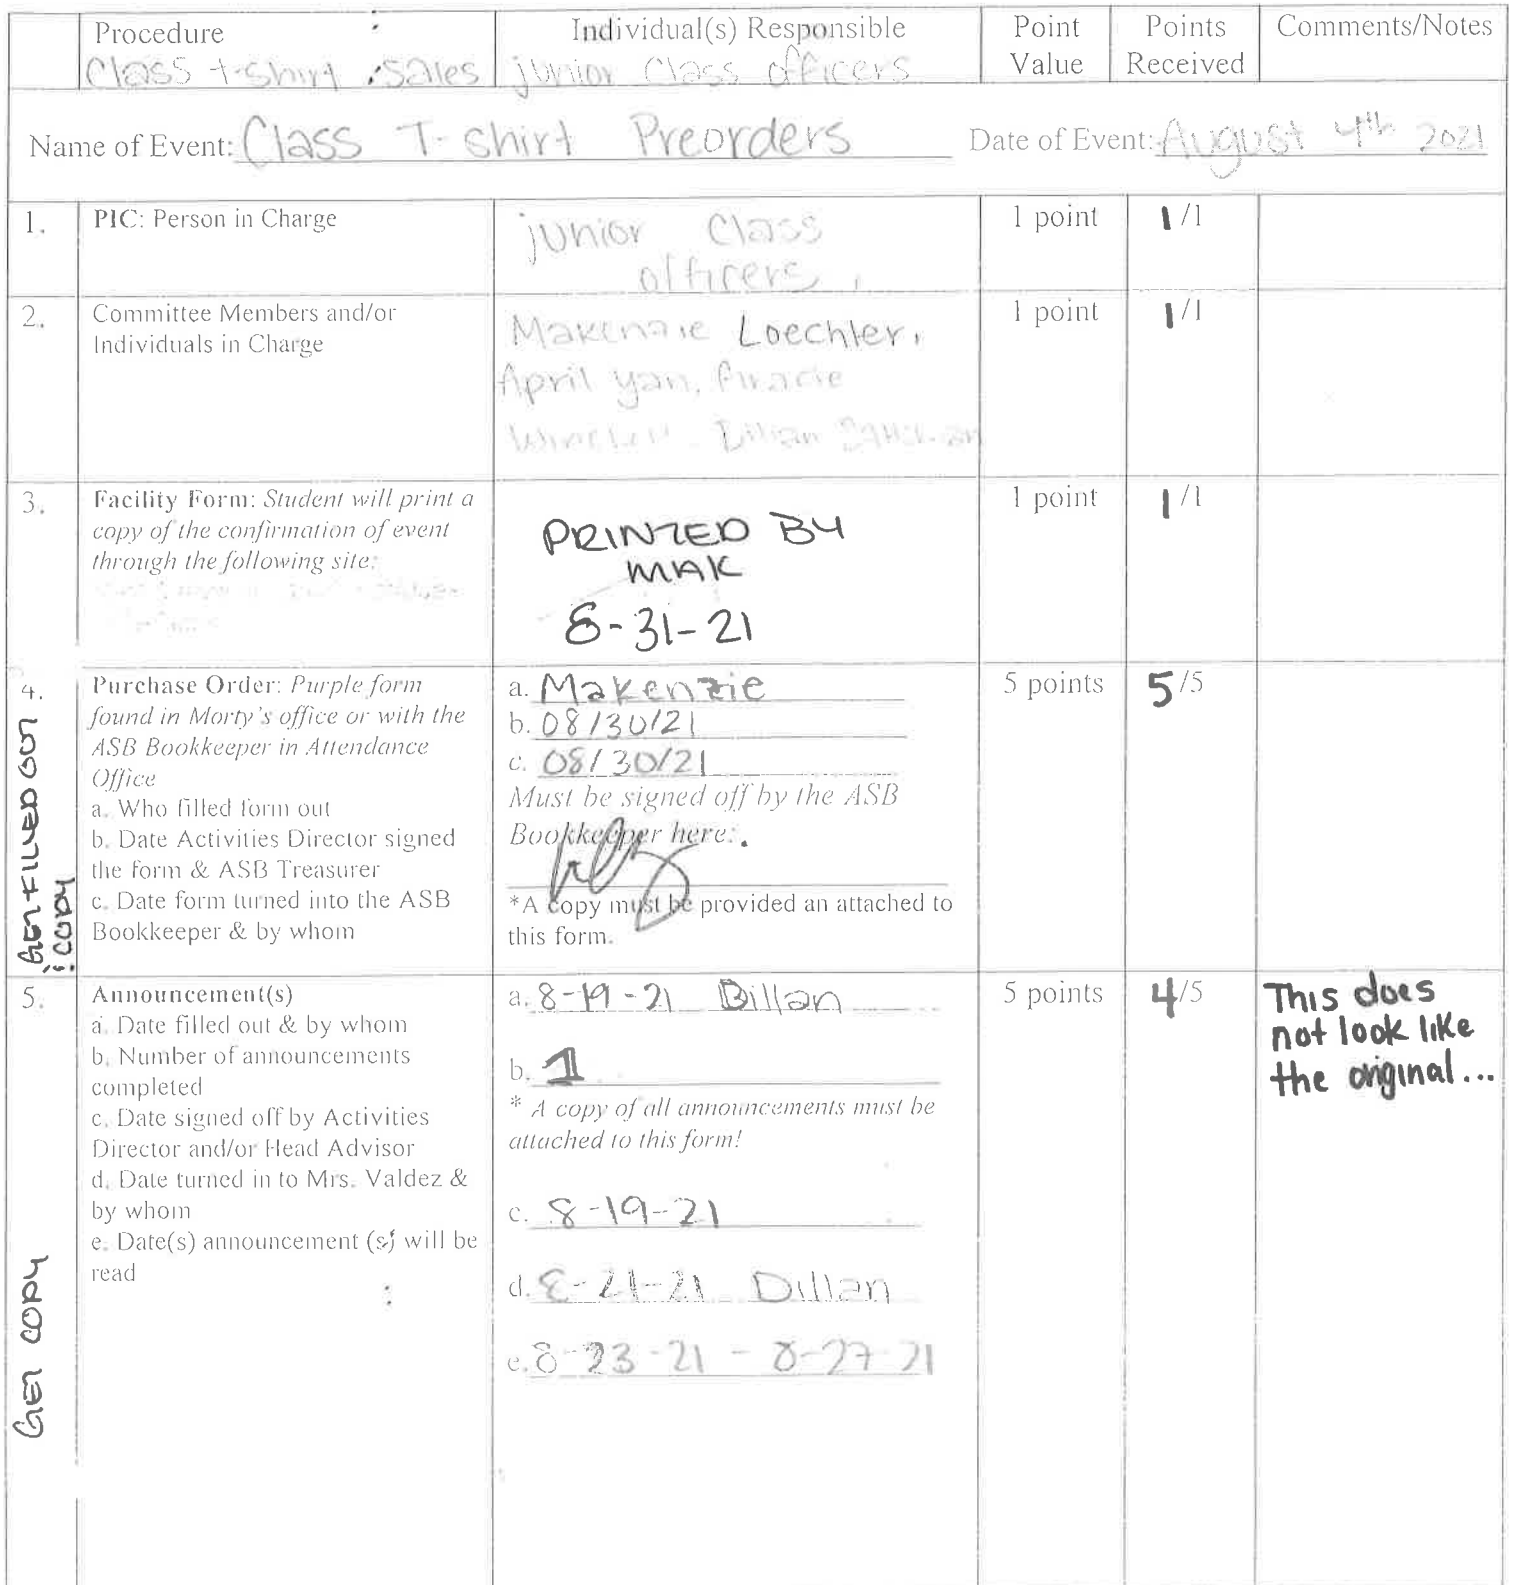 Procedure
Individual(s) Responsible
Point
Value
Points
Received
Comments/Notes
Class t-shirt sales
junior Class officers
Name of Event: Class T-shirt Preorders
Date of Event: August 4th 2021
1.
PIC: Person in Charge
junior Class
officers
1 point
1/1
2.
Committee Members and/or
Individuals in Charge
Makenzie Loechler,
April Yan,
1 point
1/1
3.
Facility Form: Student will print a
copy of the confirmation of event
through the following site:
PRINTED BY
MAK
8-31-21
1 point
1/1
4.
GET FILLED OUT
COPY
Purchase Order: Purple form
found in Morty's office or with the
ASB Bookkeeper in Attendance
Office
a. Who filled form out
b. Date Activities Director signed
the form & ASB Treasurer
c. Date form turned into the ASB
Bookkeeper & by whom
a. Makenzie
b. 08/30/21
c. 08/30/21
Must be signed off by the ASB
Bookkeeper here:
*A copy must be provided an attached to
this form.
5 points
5/5
5.
GET COPY
Announcement(s)
a. Date filled out & by whom
b. Number of announcements
completed
c. Date signed off by Activities
Director and/or Head Advisor
d. Date turned in to Mrs. Valdez &
by whom
e. Date(s) announcement (s) will be
read
a. 8-19-21 Dillan
b. 1
* A copy of all announcements must be
attached to this form!
c. 8-19-21
d. 8-21-21 Dillan
e. 8-23-21 - 8-27-21
5 points
4/5
This does
not look like
the original...